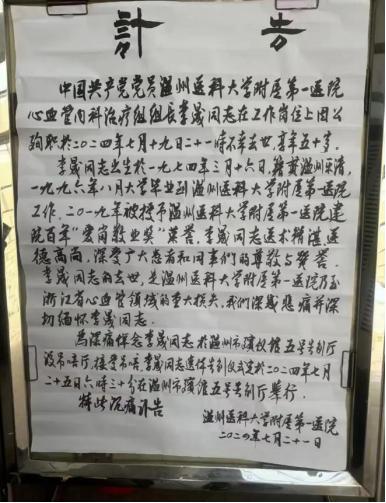 訃告
中国共产党党员温州医科大学附属第一医院
心血管内科治疗组组长李晟同志在工作岗位上因公
殉职於二〇二四年七月十九日二十一时不幸去世,享年五十岁。
李晟同志出生於一九七四年三月六日,籍贯温州乐清,
一九九六年八月大学毕业到温州医科大学附属第一医院
工作。二〇一九年被授予温州医科大学附属第一医院建
院百年“爱岗敬业奖”荣誉。李晟同志医术精湛医
德高尚,深受广大患者和同事们的尊敬与赞誉。
李晟同志的去世,是温州医科大学附属第一医院乃至
浙江省心血管领域的重大损失,我们深感悲痛并深
切缅怀李晟同志。
为深痛悼念李晟同志於温州市殡仪馆五号告别厅
设吊唁厅,接受吊唁,李晟同志遗体告别仪式定於二〇二四年七月
二十五日六时三十分在温州市殡仪馆五号告别厅举行。
特此沉痛讣告
温州医科大学附属第一医院
二〇二四年七月二十一日